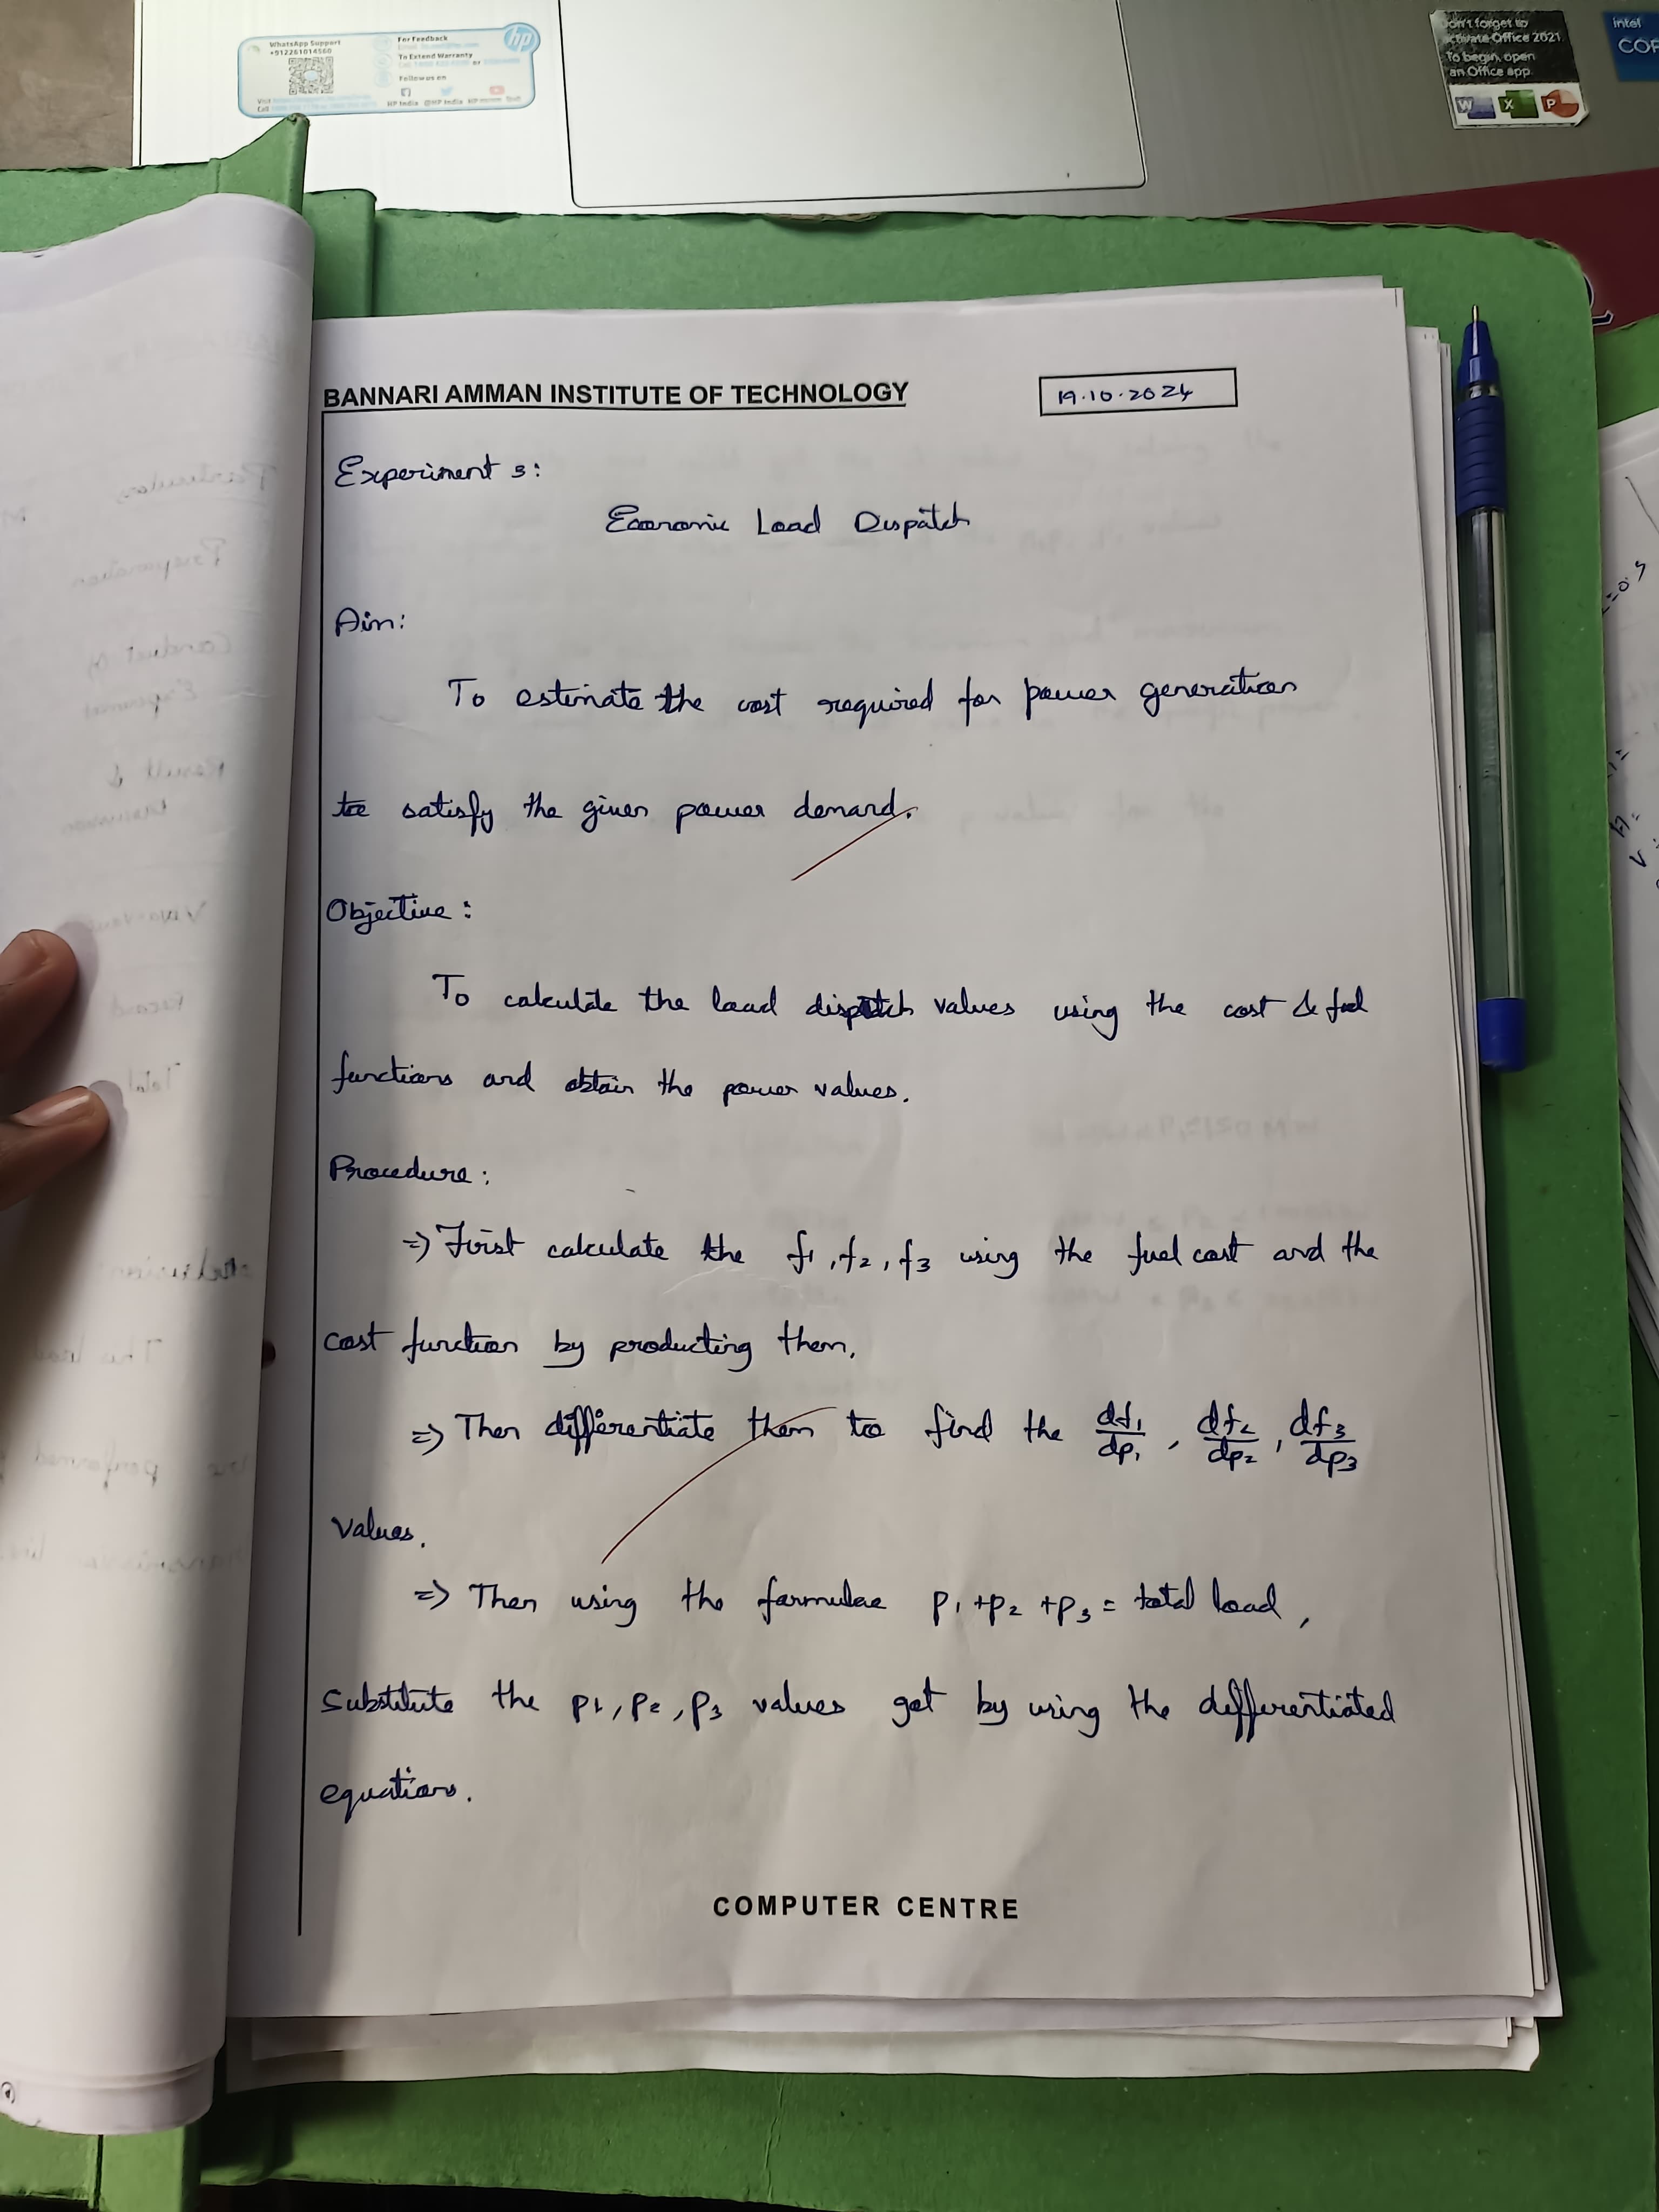 WhatsApp Support
+912261014560
For Feedback
To Extend Warranty
Follow us on
HP India @HP India
hp
Don't forget to
activate Office 2021
To begin, open
an Office app
W X P
intel
BANNARI AMMAN INSTITUTE OF TECHNOLOGY
19.10.2024
Experiment 3:
Economic Load Dispatch
Aim:
To estimate the cost required for power generation
to satisfy the given power demand.
Objective:
To calculate the load dispatch values using the cost & fuel
functions and obtain the power values.
Procedure:
=> First calculate the f1, f2, f3 using the fuel cost and the
cost function by producting them.
=> Then differentiate them to find the df1/dp1, df2/dp2, df3/dp3
values.
=> Then using the formulae p1+p2+p3 = total load,
Substitute the p1, p2, p3 values get by using the differentiated
equations.
COMPUTER CENTRE